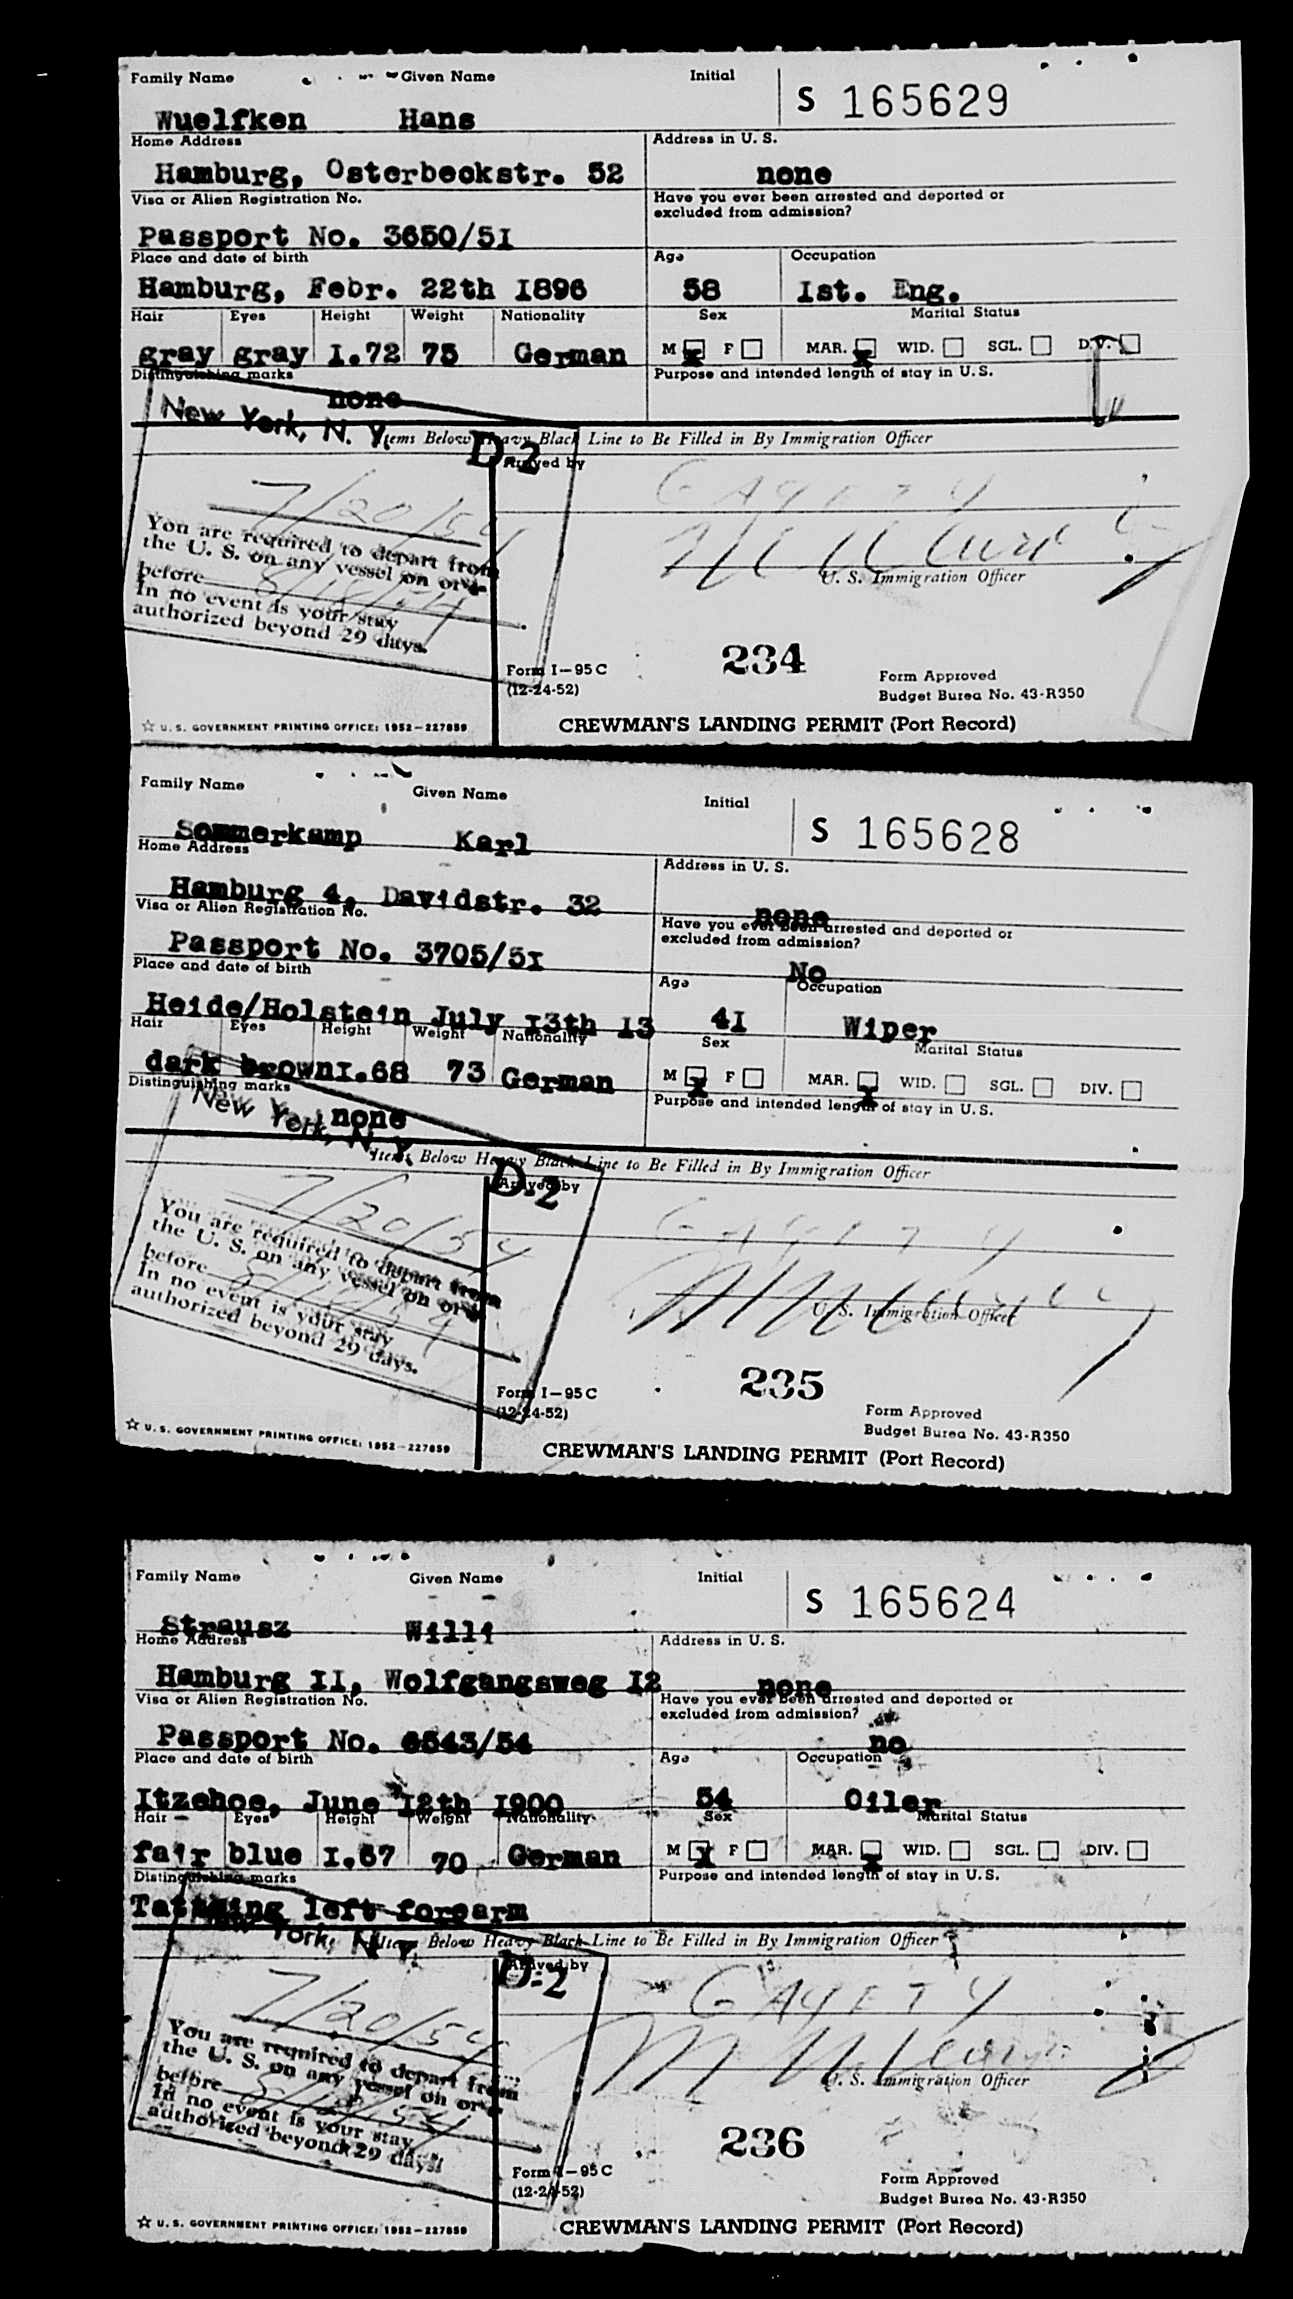 Family Name Given Name Initial
S 165629
Wuelfken Hans
Home Address Address in U. S.
Hamburg, Osterbeckstr. 52 none
Visa or Alien Registration No. Have you ever been arrested and deported or
excluded from admission?
Passport No. 3650/51
Place and date of birth Age Occupation
Hamburg, Febr. 22th I896 58 Ist. Eng.
Hair Eyes Height Weight Nationality Sex Marital Status
gray gray I.72 75 German M x F MAR. x WID. SGL. DIV.
Distinguishing marks Purpose and intended length of stay in U. S.
none
New York, N. Y.
Items Below Heavy Black Line to Be Filled in By Immigration Officer
D-2 Arrived by
7/20/54 GAYETY
You are required to depart from
the U. S. on any vessel on or
before
U. S. Immigration Officer
In no event is your stay
authorized beyond 29 days.
234
Form I-95 C Form Approved
(12-24-52) Budget Bureau No. 43-R350
☆ U. S. GOVERNMENT PRINTING OFFICE: 1952-227859 CREWMAN'S LANDING PERMIT (Port Record)
Family Name Given Name Initial
S 165628
Sommerkamp Karl
Home Address Address in U. S.
Hamburg 4, Davidstr. 32 none
Visa or Alien Registration No. Have you ever been arrested and deported or
excluded from admission?
Passport No. 3705/5I No
Place and date of birth Age Occupation
Heide/Holstein July I3th I3 4I Wiper
Hair Eyes Height Weight Nationality Sex Marital Status
dark brown I.68 73 German M x F MAR. x WID. SGL. DIV.
Distinguishing marks Purpose and intended length of stay in U. S.
none
New York, N. Y.
Items Below Heavy Black Line to Be Filled in By Immigration Officer
D-2 Arrived by
7/20/54 GAYETY
You are required to depart from
the U. S. on any vessel on or
before
U. S. Immigration Officer
In no event is your stay
authorized beyond 29 days.
235
Form I-95 C Form Approved
(12-24-52) Budget Bureau No. 43-R350
☆ U. S. GOVERNMENT PRINTING OFFICE: 1952-227859 CREWMAN'S LANDING PERMIT (Port Record)
Family Name Given Name Initial
S 165624
Strausz Willi
Home Address Address in U. S.
Hamburg II, Wolfgangsweg I2 none
Visa or Alien Registration No. Have you ever been arrested and deported or
excluded from admission?
Passport No. 6543/54 no
Place and date of birth Age Occupation
Itzehoe, June I2th I900 54 Oiler
Hair Eyes Height Weight Nationality Sex Marital Status
fair blue I.67 70 German M x F MAR. x WID. SGL. DIV.
Distinguishing marks Purpose and intended length of stay in U. S.
left forearm
New York, N. Y.
Items Below Heavy Black Line to Be Filled in By Immigration Officer
D-2 Arrived by
7/20/54 GAYETY
You are required to depart from
the U. S. on any vessel on or
before
U. S. Immigration Officer
In no event is your stay
authorized beyond 29 days.
236
Form I-95 C Form Approved
(12-24-52) Budget Bureau No. 43-R350
☆ U. S. GOVERNMENT PRINTING OFFICE: 1952-227859 CREWMAN'S LANDING PERMIT (Port Record)